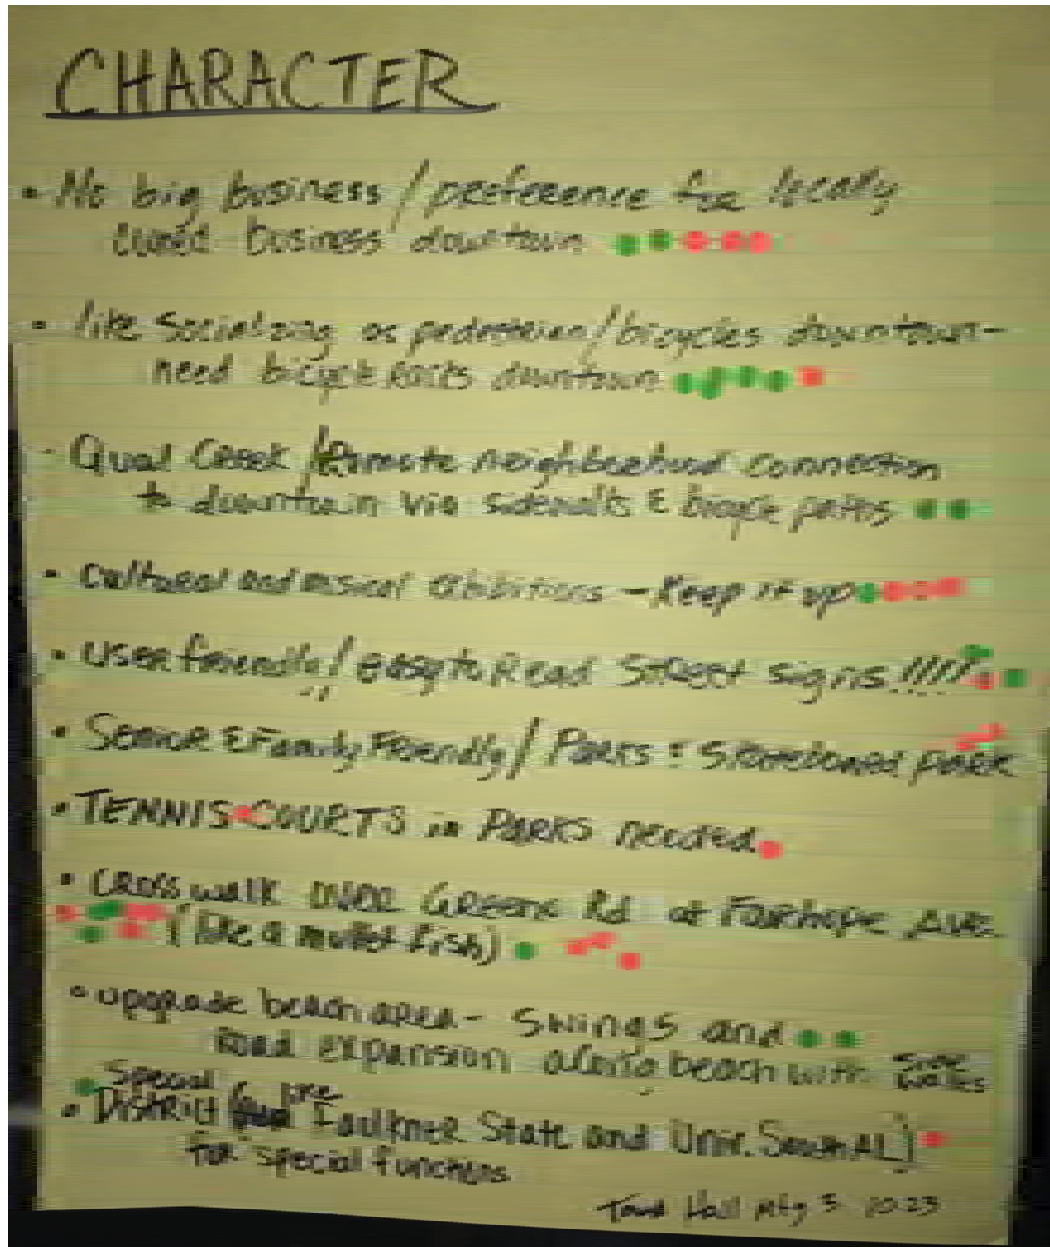 CHARACTER
• No big business / preference for locally
owned business downtown
• like Socializing as pedestrian/bicycles downtown-
need bicycle racks downtown
• Quail Creek / Remote neighborhood connection
to downtown via sidewalks & bicycle paths
• Cultural and musical exhibitions - Keep it up
• User friendly / easy to Read Street signs!!!!!
• Senior & Family Friendly / Parks : Skateboard park
• TENNIS COURTS in PARKS needed
• CROSS walk OVER Greeno Rd at Fairhope Ave.
(like a mullet fish)
• upgrade beach area - swings and
Road expansion along beach with side
walks
Special
• District for Faulkner State and Univ. South AL]
for special functions
Town Hall Mtg 3 10-23